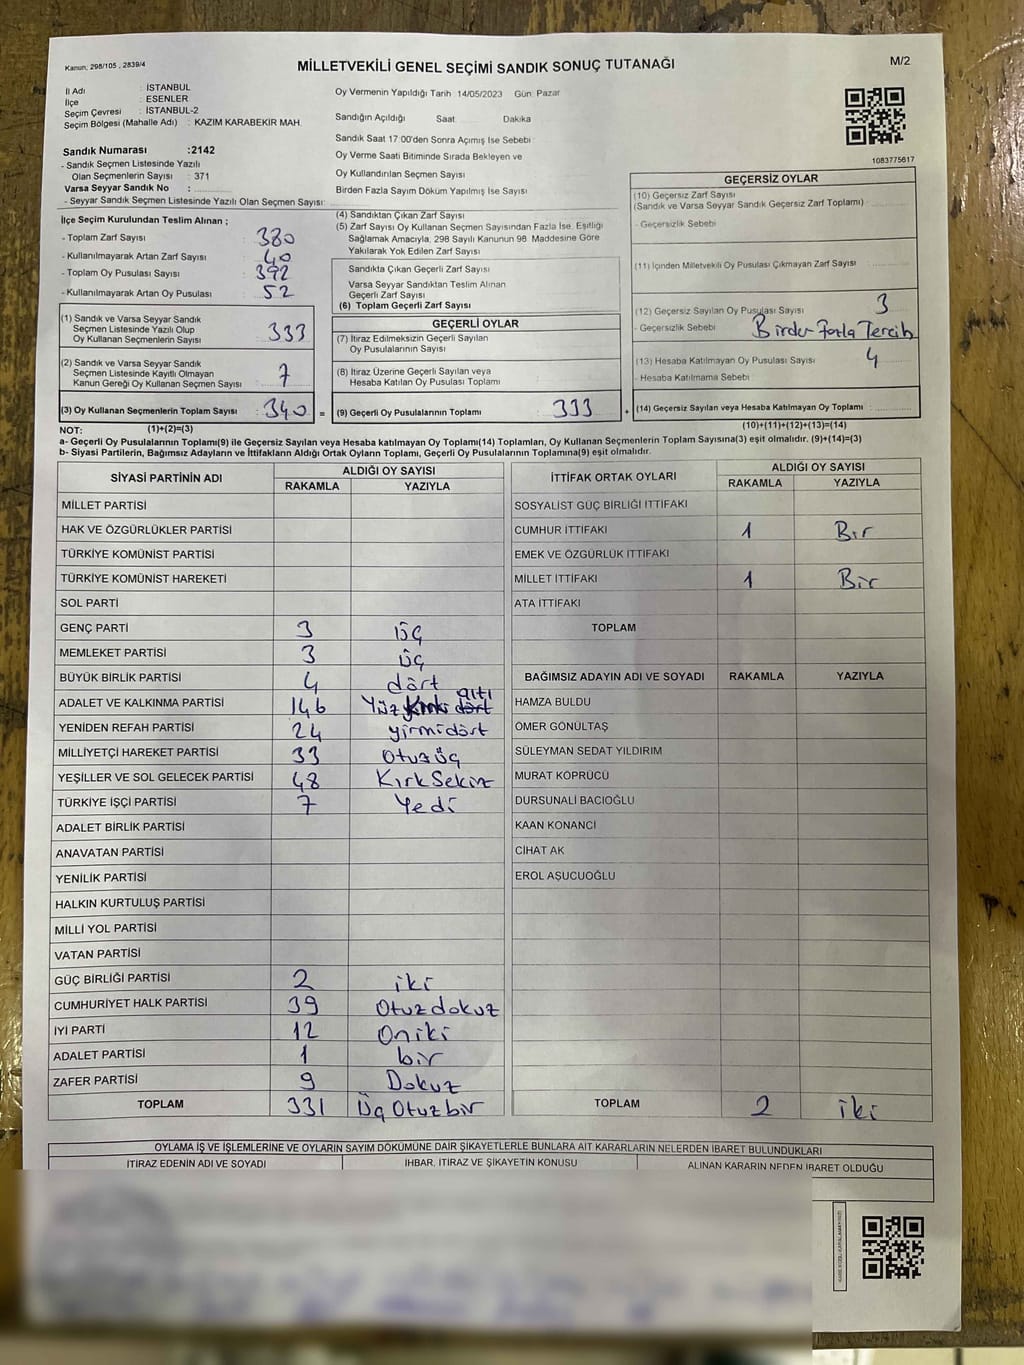 Kanun; 298/105 , 2839/4
MİLLETVEKİLİ GENEL SEÇİMİ SANDIK SONUÇ TUTANAĞI
M/2
İl Adı : İSTANBUL
İlçe : ESENLER
Seçim Çevresi : İSTANBUL-2
Seçim Bölgesi (Mahalle Adı) : KAZIM KARABEKİR MAH.
Sandık Numarası :2142
- Sandık Seçmen Listesinde Yazılı
Olan Seçmenlerin Sayısı : 371
Varsa Seyyar Sandık No :
- Seyyar Sandık Seçmen Listesinde Yazılı Olan Seçmen Sayısı:
Oy Vermenin Yapıldığı Tarih 14/05/2023 Gün: Pazar
Sandığın Açıldığı Saat Dakika
Sandık Saat 17:00'den Sonra Açılmış İse Sebebi :
Oy Verme Saati Bitiminde Sırada Bekleyen ve
Oy Kullandırılan Seçmen Sayısı
Birden Fazla Sayım Döküm Yapılmış İse Sayısı
1083775617
İlçe Seçim Kurulundan Teslim Alınan ;
- Toplam Zarf Sayısı : 380
- Kullanılmayarak Artan Zarf Sayısı : 40
- Toplam Oy Pusulası Sayısı : 392
- Kullanılmayarak Artan Oy Pusulası : 52
(1) Sandık ve Varsa Seyyar Sandık
Seçmen Listesinde Yazılı Olup
Oy Kullanan Seçmenlerin Sayısı : 333
(2) Sandık ve Varsa Seyyar Sandık
Seçmen Listesinde Kayıtlı Olmayan
Kanun Gereği Oy Kullanan Seçmen Sayısı : 7
(3) Oy Kullanan Seçmenlerin Toplam Sayısı : 340 =
(1)+(2)=(3)
(4) Sandıktan Çıkan Zarf Sayısı
(5) Zarf Sayısı Oy Kullanan Seçmen Sayısından Fazla İse, Eşitliği
Sağlamak Amacıyla, 298 Sayılı Kanunun 98. Maddesine Göre
Yakılarak Yok Edilen Zarf Sayısı
Sandıkta Çıkan Geçerli Zarf Sayısı
Varsa Seyyar Sandıktan Teslim Alınan
Geçerli Zarf Sayısı
(6) Toplam Geçerli Zarf Sayısı
GEÇERLİ OYLAR
(7) İtiraz Edilmeksizin Geçerli Sayılan
Oy Pusulalarının Sayısı
(8) İtiraz Üzerine Geçerli Sayılan veya
Hesaba Katılan Oy Pusulası Toplamı
(9) Geçerli Oy Pusulalarının Toplamı : 333 +
GEÇERSİZ OYLAR
(10) Geçersiz Zarf Sayısı
(Sandık ve Varsa Seyyar Sandık Geçersiz Zarf Toplamı) :
- Geçersizlik Sebebi :
(11) İçinden Milletvekili Oy Pusulası Çıkmayan Zarf Sayısı :
(12) Geçersiz Sayılan Oy Pusulası Sayısı : 3
- Geçersizlik Sebebi : Birden fazla Tercih
(13) Hesaba Katılmayan Oy Pusulası Sayısı : 4
- Hesaba Katılmama Sebebi :
(14) Geçersiz Sayılan veya Hesaba Katılmayan Oy Toplamı :
(10)+(11)+(12)+(13)=(14)
NOT:
a- Geçerli Oy Pusulalarının Toplamı(9) ile Geçersiz Sayılan veya Hesaba katılmayan Oy Toplamı(14) Toplamları, Oy Kullanan Seçmenlerin Toplam Sayısına(3) eşit olmalıdır. (9)+(14)=(3)
b- Siyasi Partilerin, Bağımsız Adayların ve İttifakların Aldığı Ortak Oyların Toplamı, Geçerli Oy Pusulalarının Toplamına(9) eşit olmalıdır.
SİYASİ PARTİNİN ADI ALDIĞI OY SAYISI
RAKAMLA YAZIYLA
MİLLET PARTİSİ
HAK VE ÖZGÜRLÜKLER PARTİSİ
TÜRKİYE KOMÜNİST PARTİSİ
TÜRKİYE KOMÜNİST HAREKETİ
SOL PARTİ
GENÇ PARTİ 3 üç
MEMLEKET PARTİSİ 3 üç
BÜYÜK BİRLİK PARTİSİ 4 dört
ADALET VE KALKINMA PARTİSİ 146 Yüz kırk dört altı
YENİDEN REFAH PARTİSİ 24 yirmidört
MİLLİYETÇİ HAREKET PARTİSİ 33 Otuzüç
YEŞİLLER VE SOL GELECEK PARTİSİ 48 KırkSekiz
TÜRKİYE İŞÇİ PARTİSİ 7 Yedi
ADALET BİRLİK PARTİSİ
ANAVATAN PARTİSİ
YENİLİK PARTİSİ
HALKIN KURTULUŞ PARTİSİ
MİLLİ YOL PARTİSİ
VATAN PARTİSİ
GÜÇ BİRLİĞİ PARTİSİ 2 iki
CUMHURİYET HALK PARTİSİ 39 Otuzdokuz
İYİ PARTİ 12 Oniki
ADALET PARTİSİ 1 bir
ZAFER PARTİSİ 9 Dokuz
TOPLAM 331 Üç Otuzbir
İTTİFAK ORTAK OYLARI ALDIĞI OY SAYISI
RAKAMLA YAZIYLA
SOSYALİST GÜÇ BİRLİĞİ İTTİFAKI
CUMHUR İTTİFAKI 1 Bir
EMEK VE ÖZGÜRLÜK İTTİFAKI
MİLLET İTTİFAKI 1 Bir
ATA İTTİFAKI
TOPLAM
BAĞIMSIZ ADAYIN ADI VE SOYADI RAKAMLA YAZIYLA
HAMZA BULDU
ÖMER GÖNÜLTAŞ
SÜLEYMAN SEDAT YILDIRIM
MURAT KÖPRÜCÜ
DURSUNALİ BACIOĞLU
KAAN KONANCİ
CİHAT AK
EROL AŞUCUOĞLU
TOPLAM 2 iki
OYLAMA İŞ VE İŞLEMLERİNE VE OYLARIN SAYIM DÖKÜMÜNE DAİR ŞİKAYETLERLE BUNLARA AİT KARARLARIN NELERDEN İBARET BULUNDUKLARI
İTİRAZ EDENİN ADI VE SOYADI İHBAR, İTİRAZ VE ŞİKAYETİN KONUSU ALINAN KARARIN NEDEN İBARET OLDUĞU